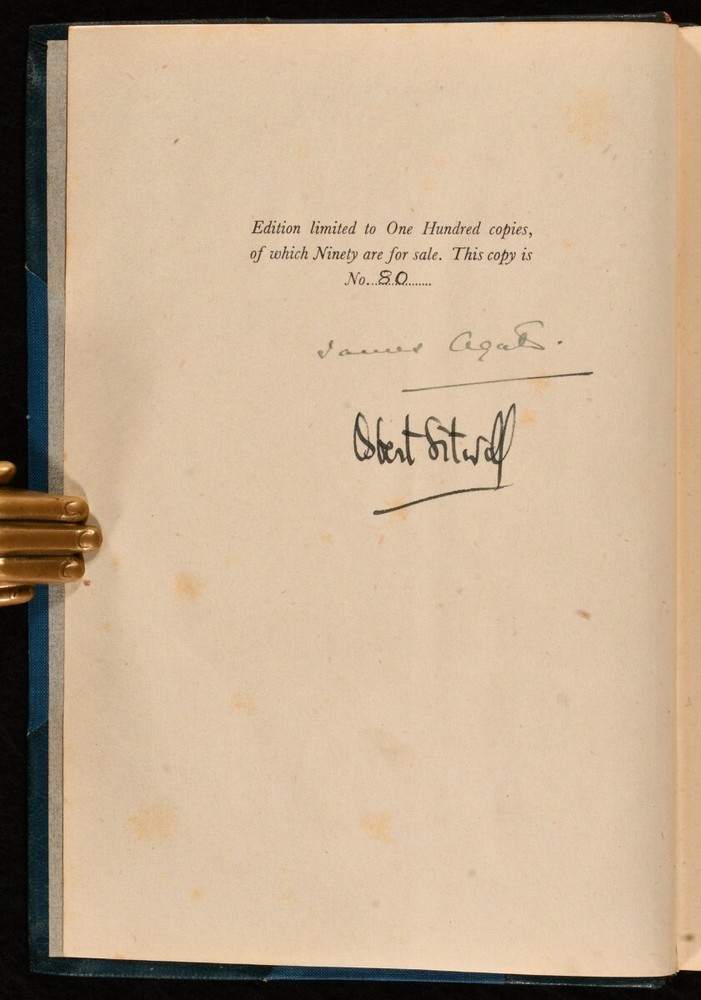 Edition limited to One Hundred copies,
of which Ninety are for sale. This copy is
No...80.......
James Agate.
Osbert Sitwell